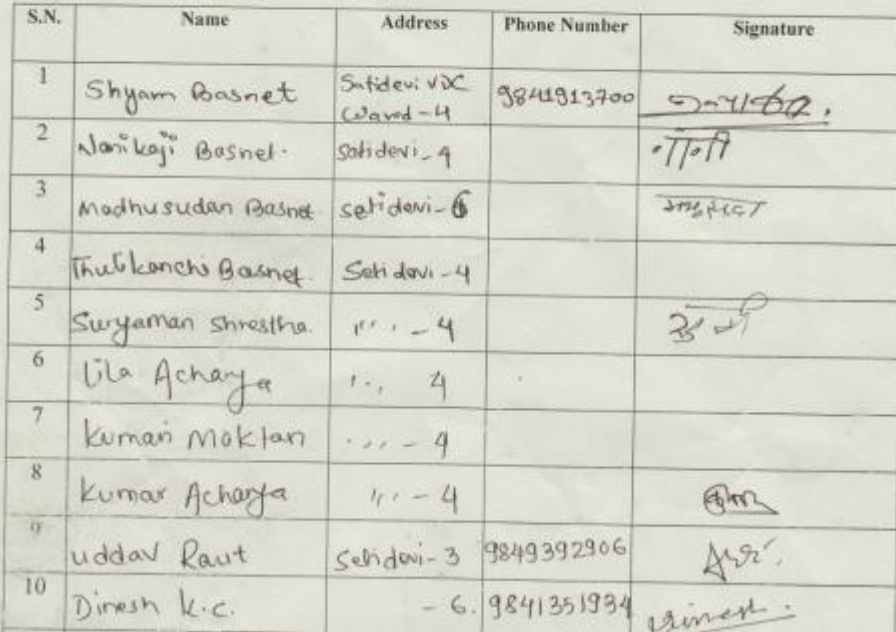 S.N. Name Address Phone Number Signature
1 Shyam Basnet Satidevi VDC Ward-4 9841913700
2 Nanikaji Basnet. Satidevi-4 नानी
3 Madhusudan Basnet Setidevi-6
4 Thulikanchi Basnet. Setidevi-4
5 Suryaman Shrestha. " " - 4
6 Lila Acharya " " 4
7 Kumari Moktan " " - 4
8 Kumar Acharya " " - 4
9 Uddav Raut Setidevi-3 9849392906
10 Dinesh K.C. - 6. 9841351934 Dinesh.